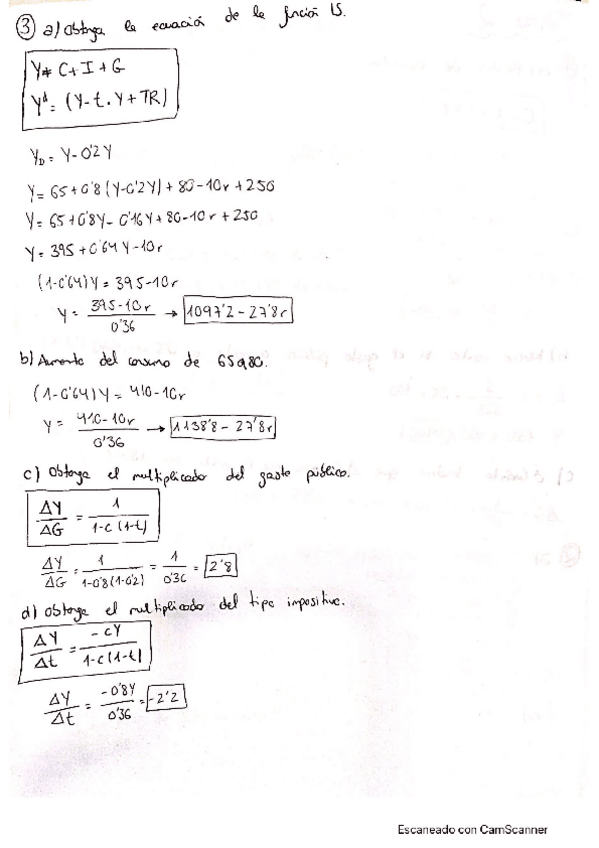 ③ a) Obtenga la ecuación de la función IS.
Y = C + I + G
Yᵈ = (Y - t . Y + TR)
Y_D = Y - 0'2Y
Y = 65 + 0'8 (Y - 0'2Y) + 80 - 10r + 250
Y = 65 + 0'8Y - 0'16Y + 80 - 10r + 250
Y = 395 + 0'64 Y - 10r
(1 - 0'64) Y = 395 - 10r
Y = (395 - 10r) / 0'36 → 1097'2 - 27'8r
b) Aumento del consumo de 65 a 80.
(1 - 0'64) Y = 410 - 10r
Y = (410 - 10r) / 0'36 → 1138'8 - 27'8r
c) Obtenga el multiplicador del gasto público.
ΔY/ΔG = 1 / (1 - c (1 - t))
ΔY/ΔG = 1 / (1 - 0'8 (1 - 0'2)) = 1 / 0'36 = 2'8
d) Obtenga el multiplicador del tipo impositivo.
ΔY/Δt = -cY / (1 - c (1 - t))
ΔY/Δt = -0'8Y / 0'36 = -2'2
Escaneado con CamScanner